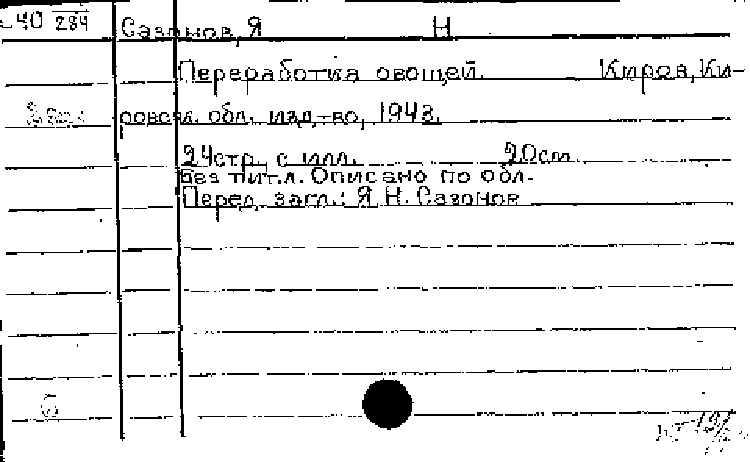 40 284 Сазонов, Я Н
Переработка овощей. Киров, Ки-
ровск. обл. изд-во, 1943.
24стр. с илл. 20см
Без тит.л. Описано по обл.
Перед загл.: Я. Н. Сазонов
Б